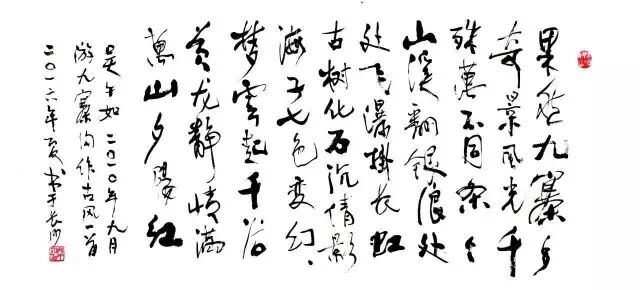 果然九寨多
奇景风光千
殊萬不同条々
山溪翻银浪处
处飞瀑掛长虹
古树化石沉倩影
海子七色变幻、
梦雲起千谷
黄龙静情满
萬山夕陽红
二〇一〇年九月
游九寨沟作古风一首
二〇一六年夏书于长沙